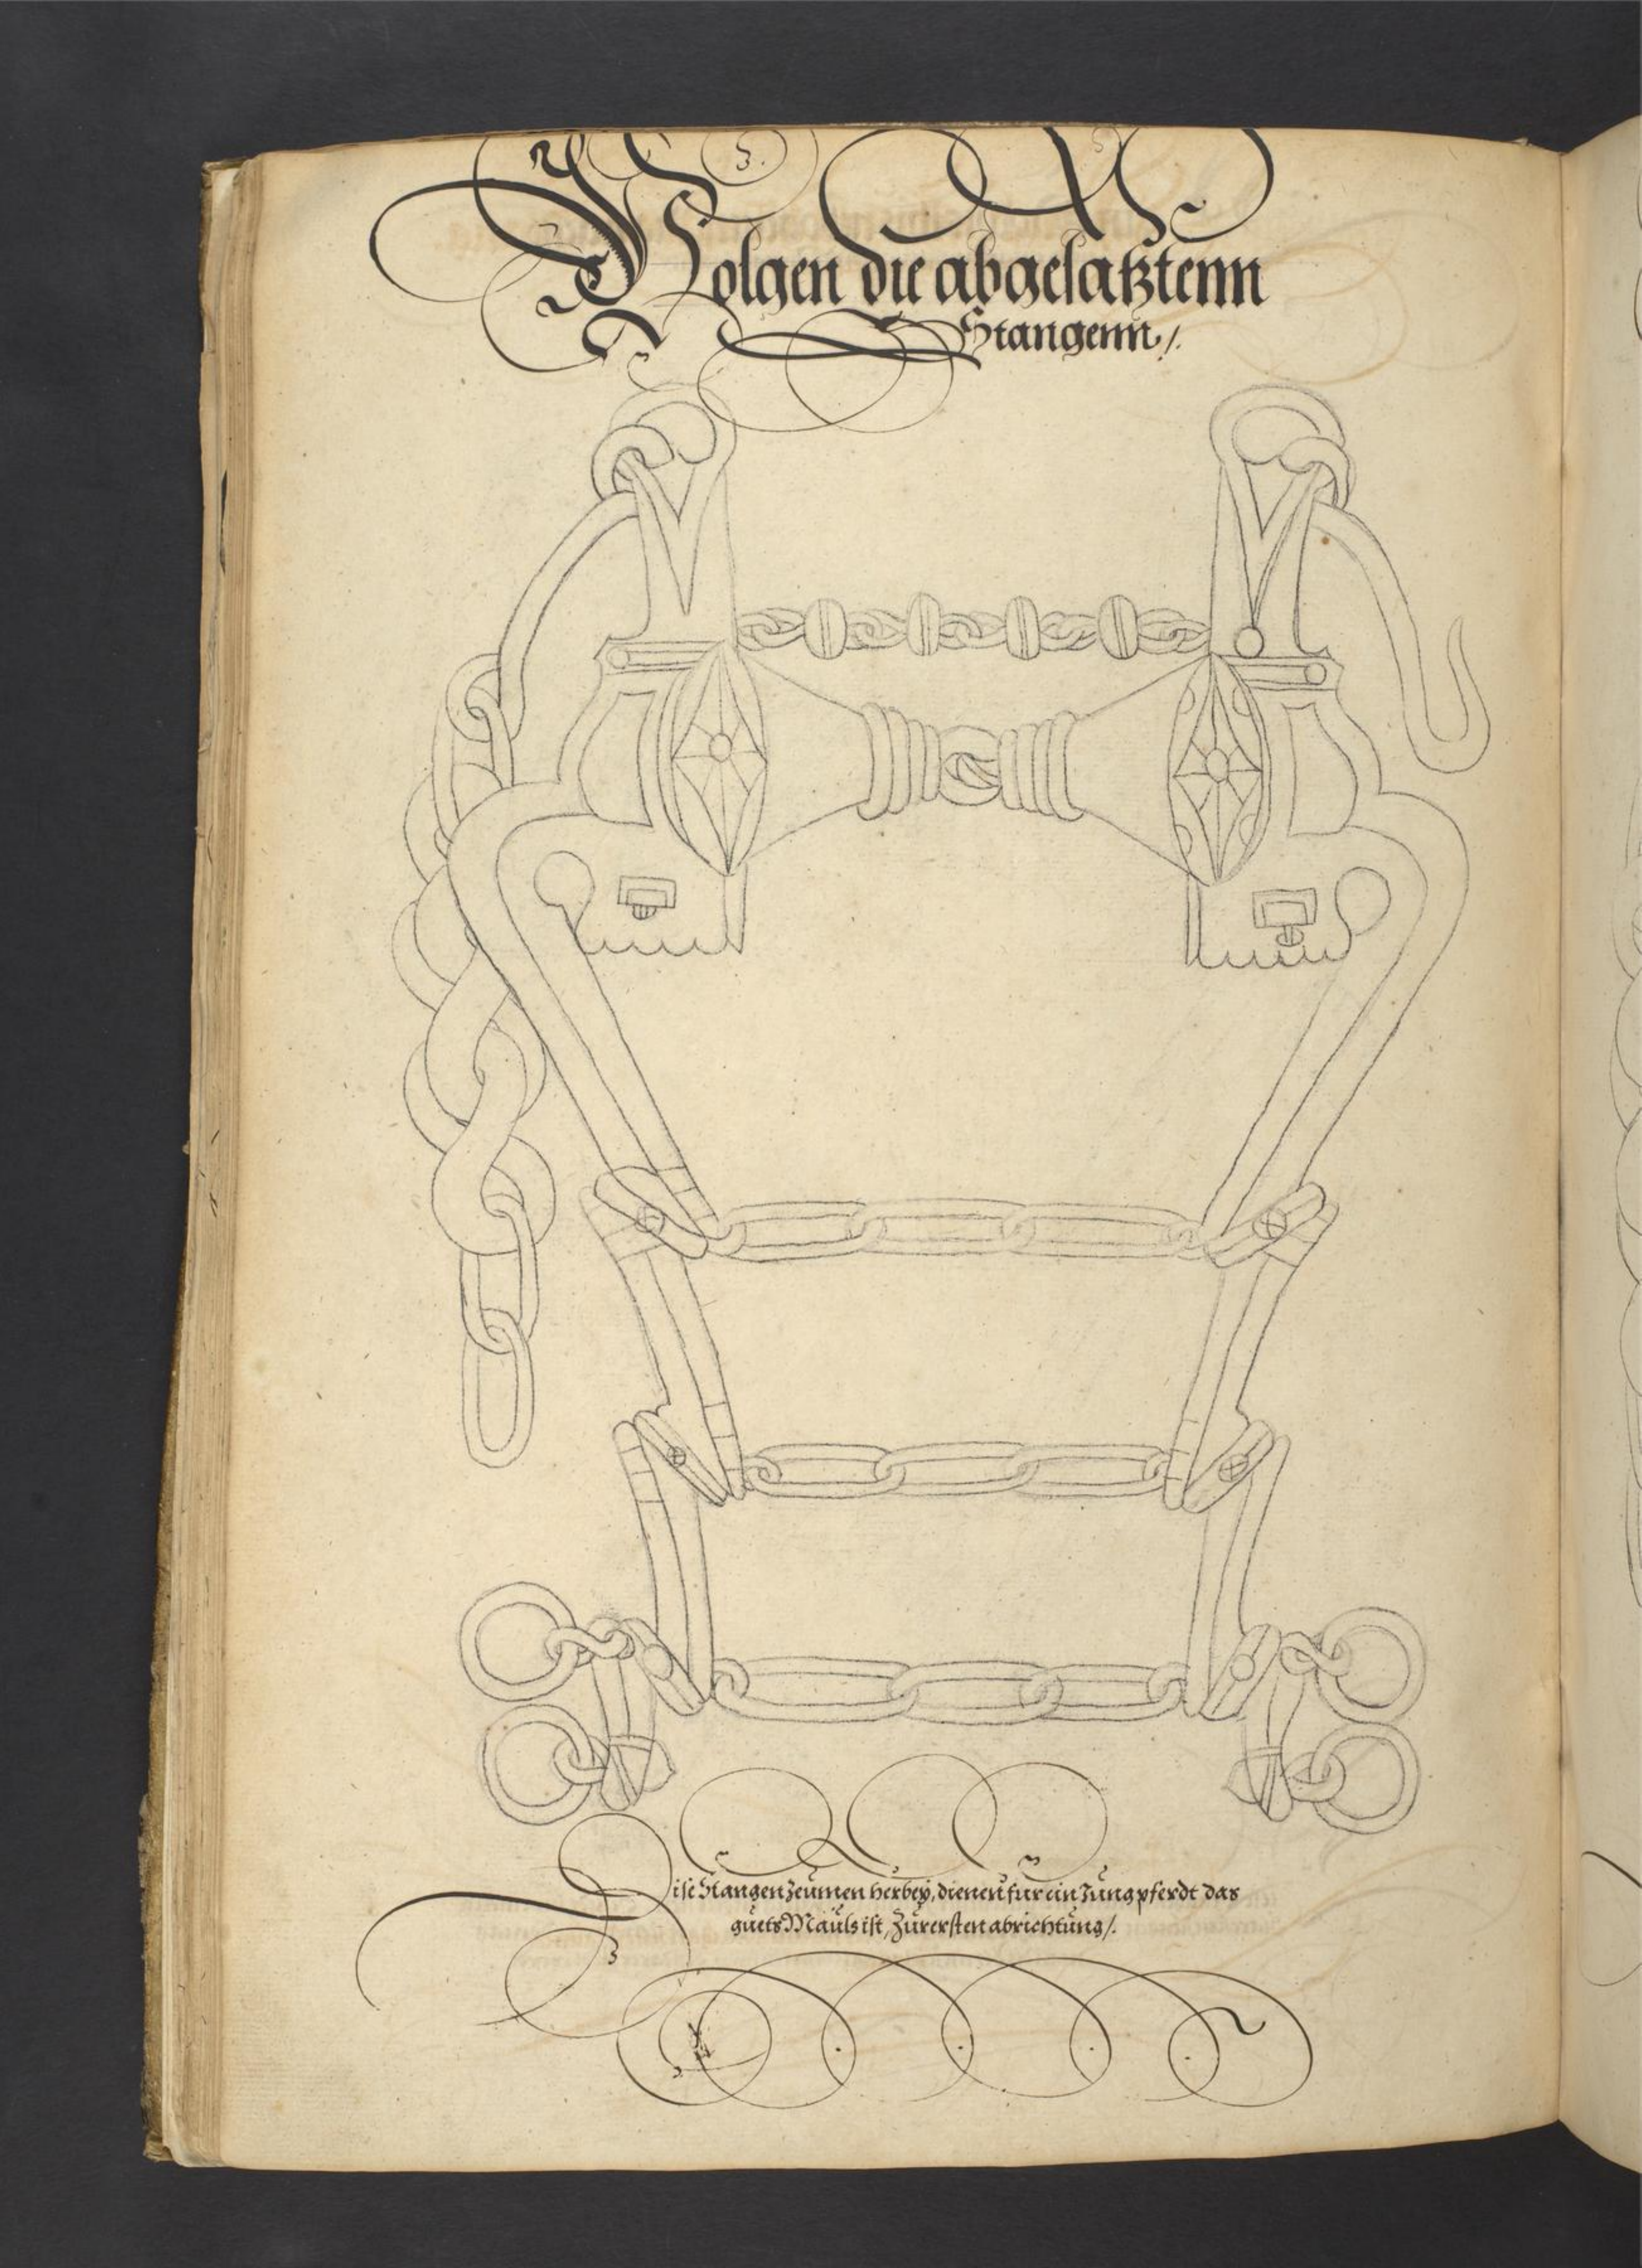 Volgen die abgesatztenn
Stangenn /.
Dise Stangen zeumen herbey, dienen für ein Jung pferdt das
guets Mauls ist, Zur ersten abrichtung /.